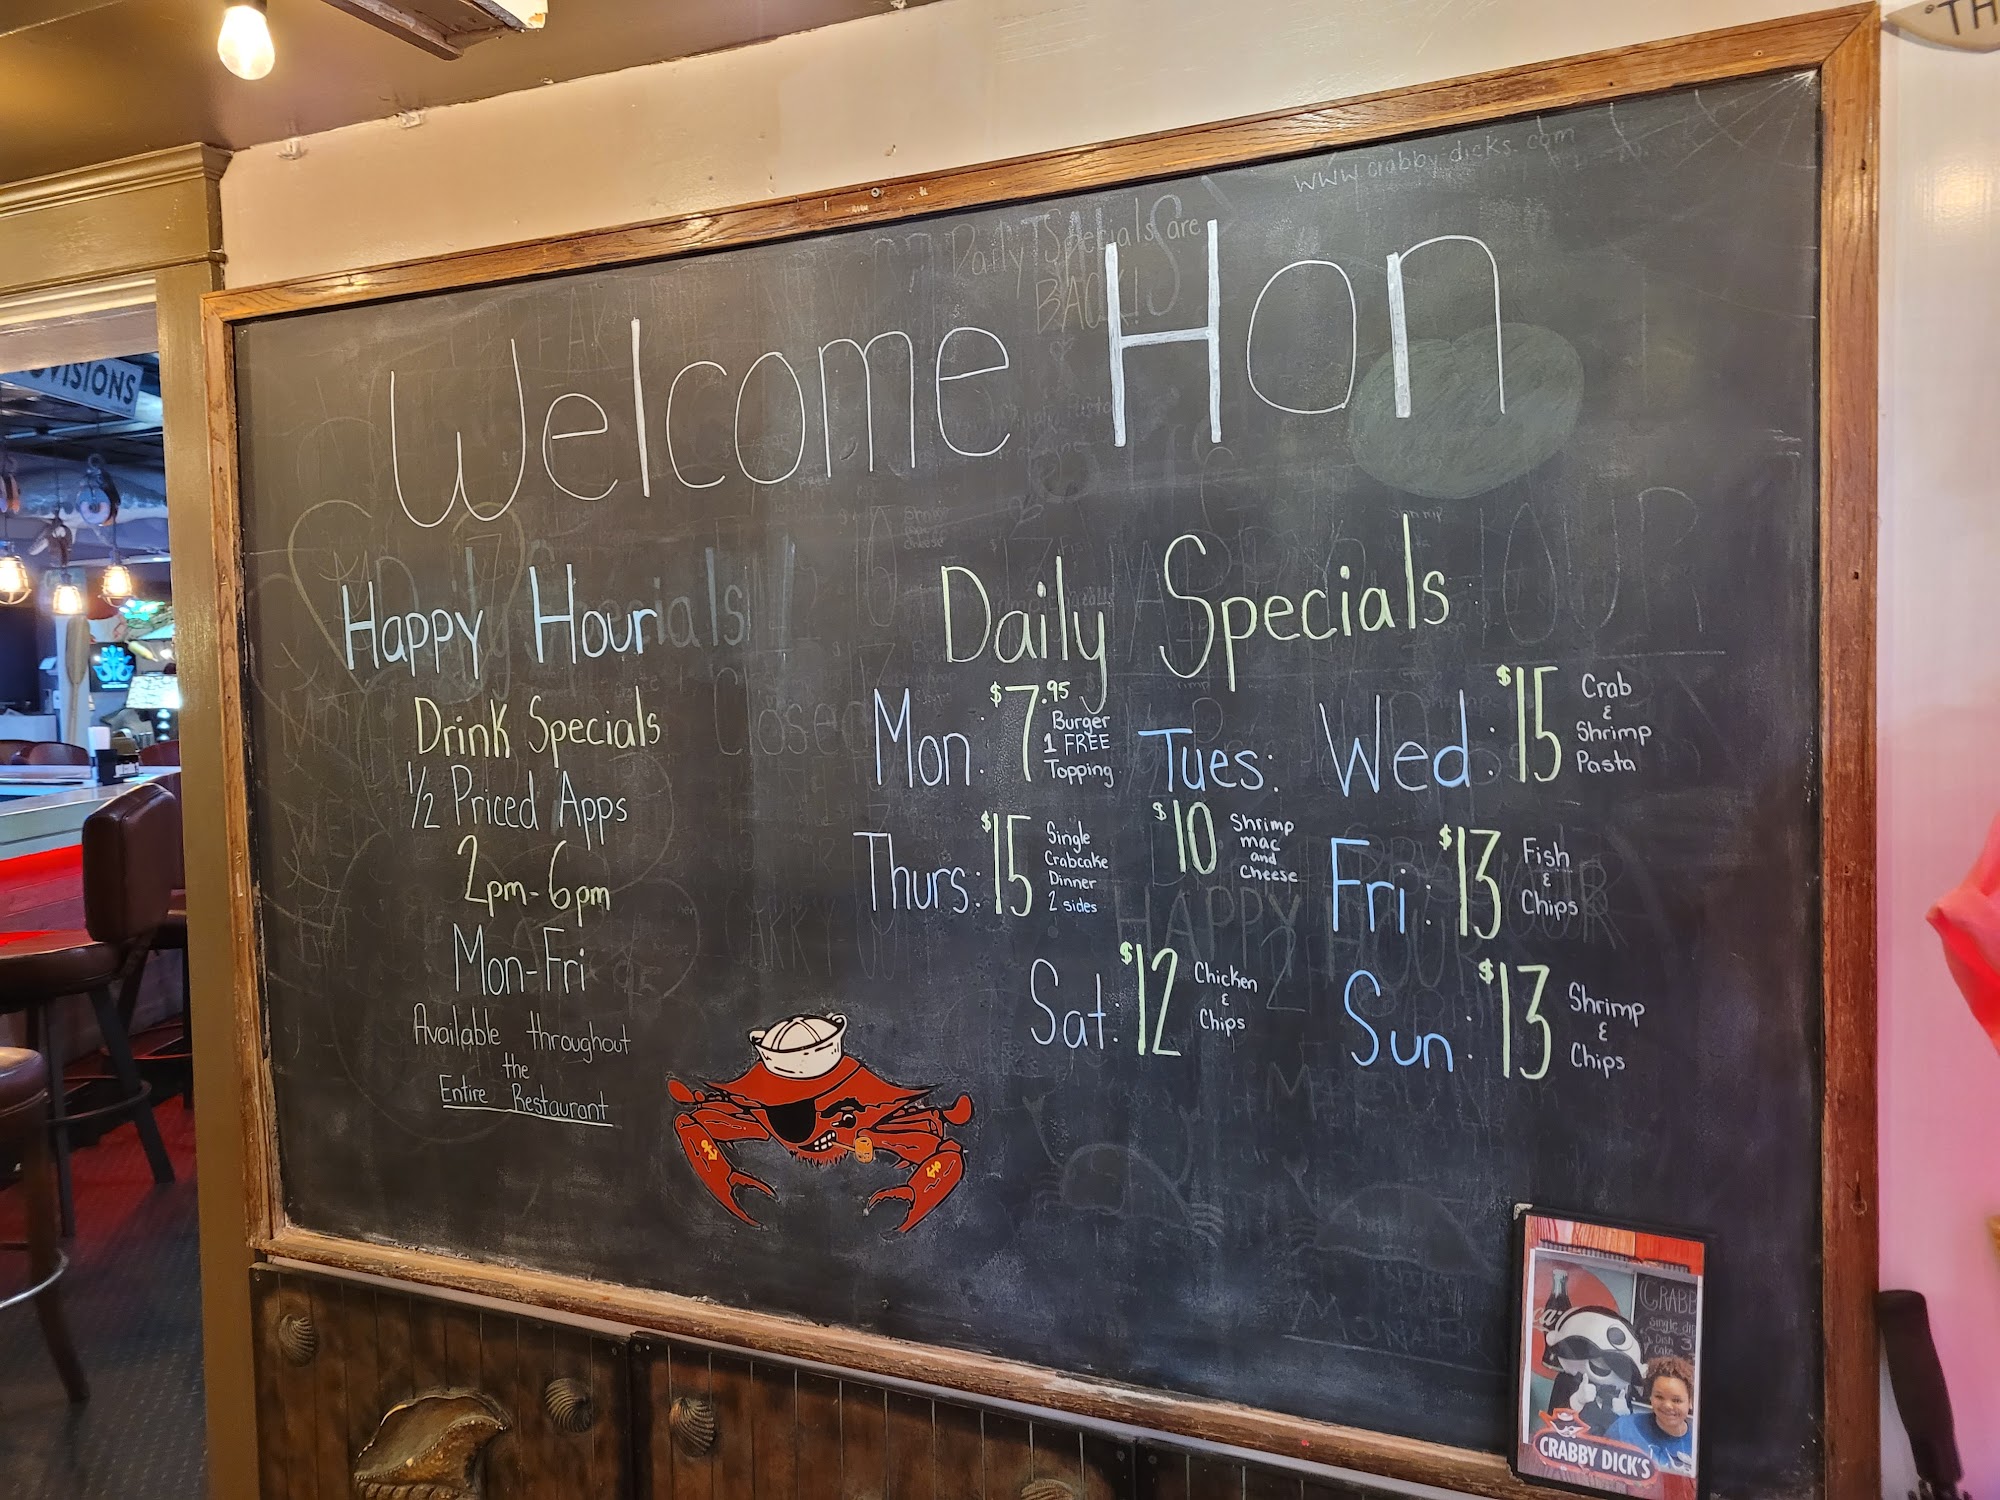 www.crabbydicks.com
Daily Specials are
BACK!
Welcome Hon
Happy Hour
Drink Specials
1/2 Priced Apps
2pm-6pm
Mon-Fri
Available throughout
the
Entire Restaurant
Daily Specials
Mon: $7.95
Burger
1 FREE
Topping
Tues:
$10
Shrimp
mac
and
Cheese
Wed: $15
Crab
&
Shrimp
Pasta
Thurs: $15
Single
Crabcake
Dinner
2 sides
Fri: $13
Fish
&
Chips
Sat: $12
Chicken
&
Chips
Sun: $13
Shrimp
&
Chips
Closed
CARRY OUT
HAPPY HOUR
VISIONS
TH
CRABB
CRABBY DICK'S